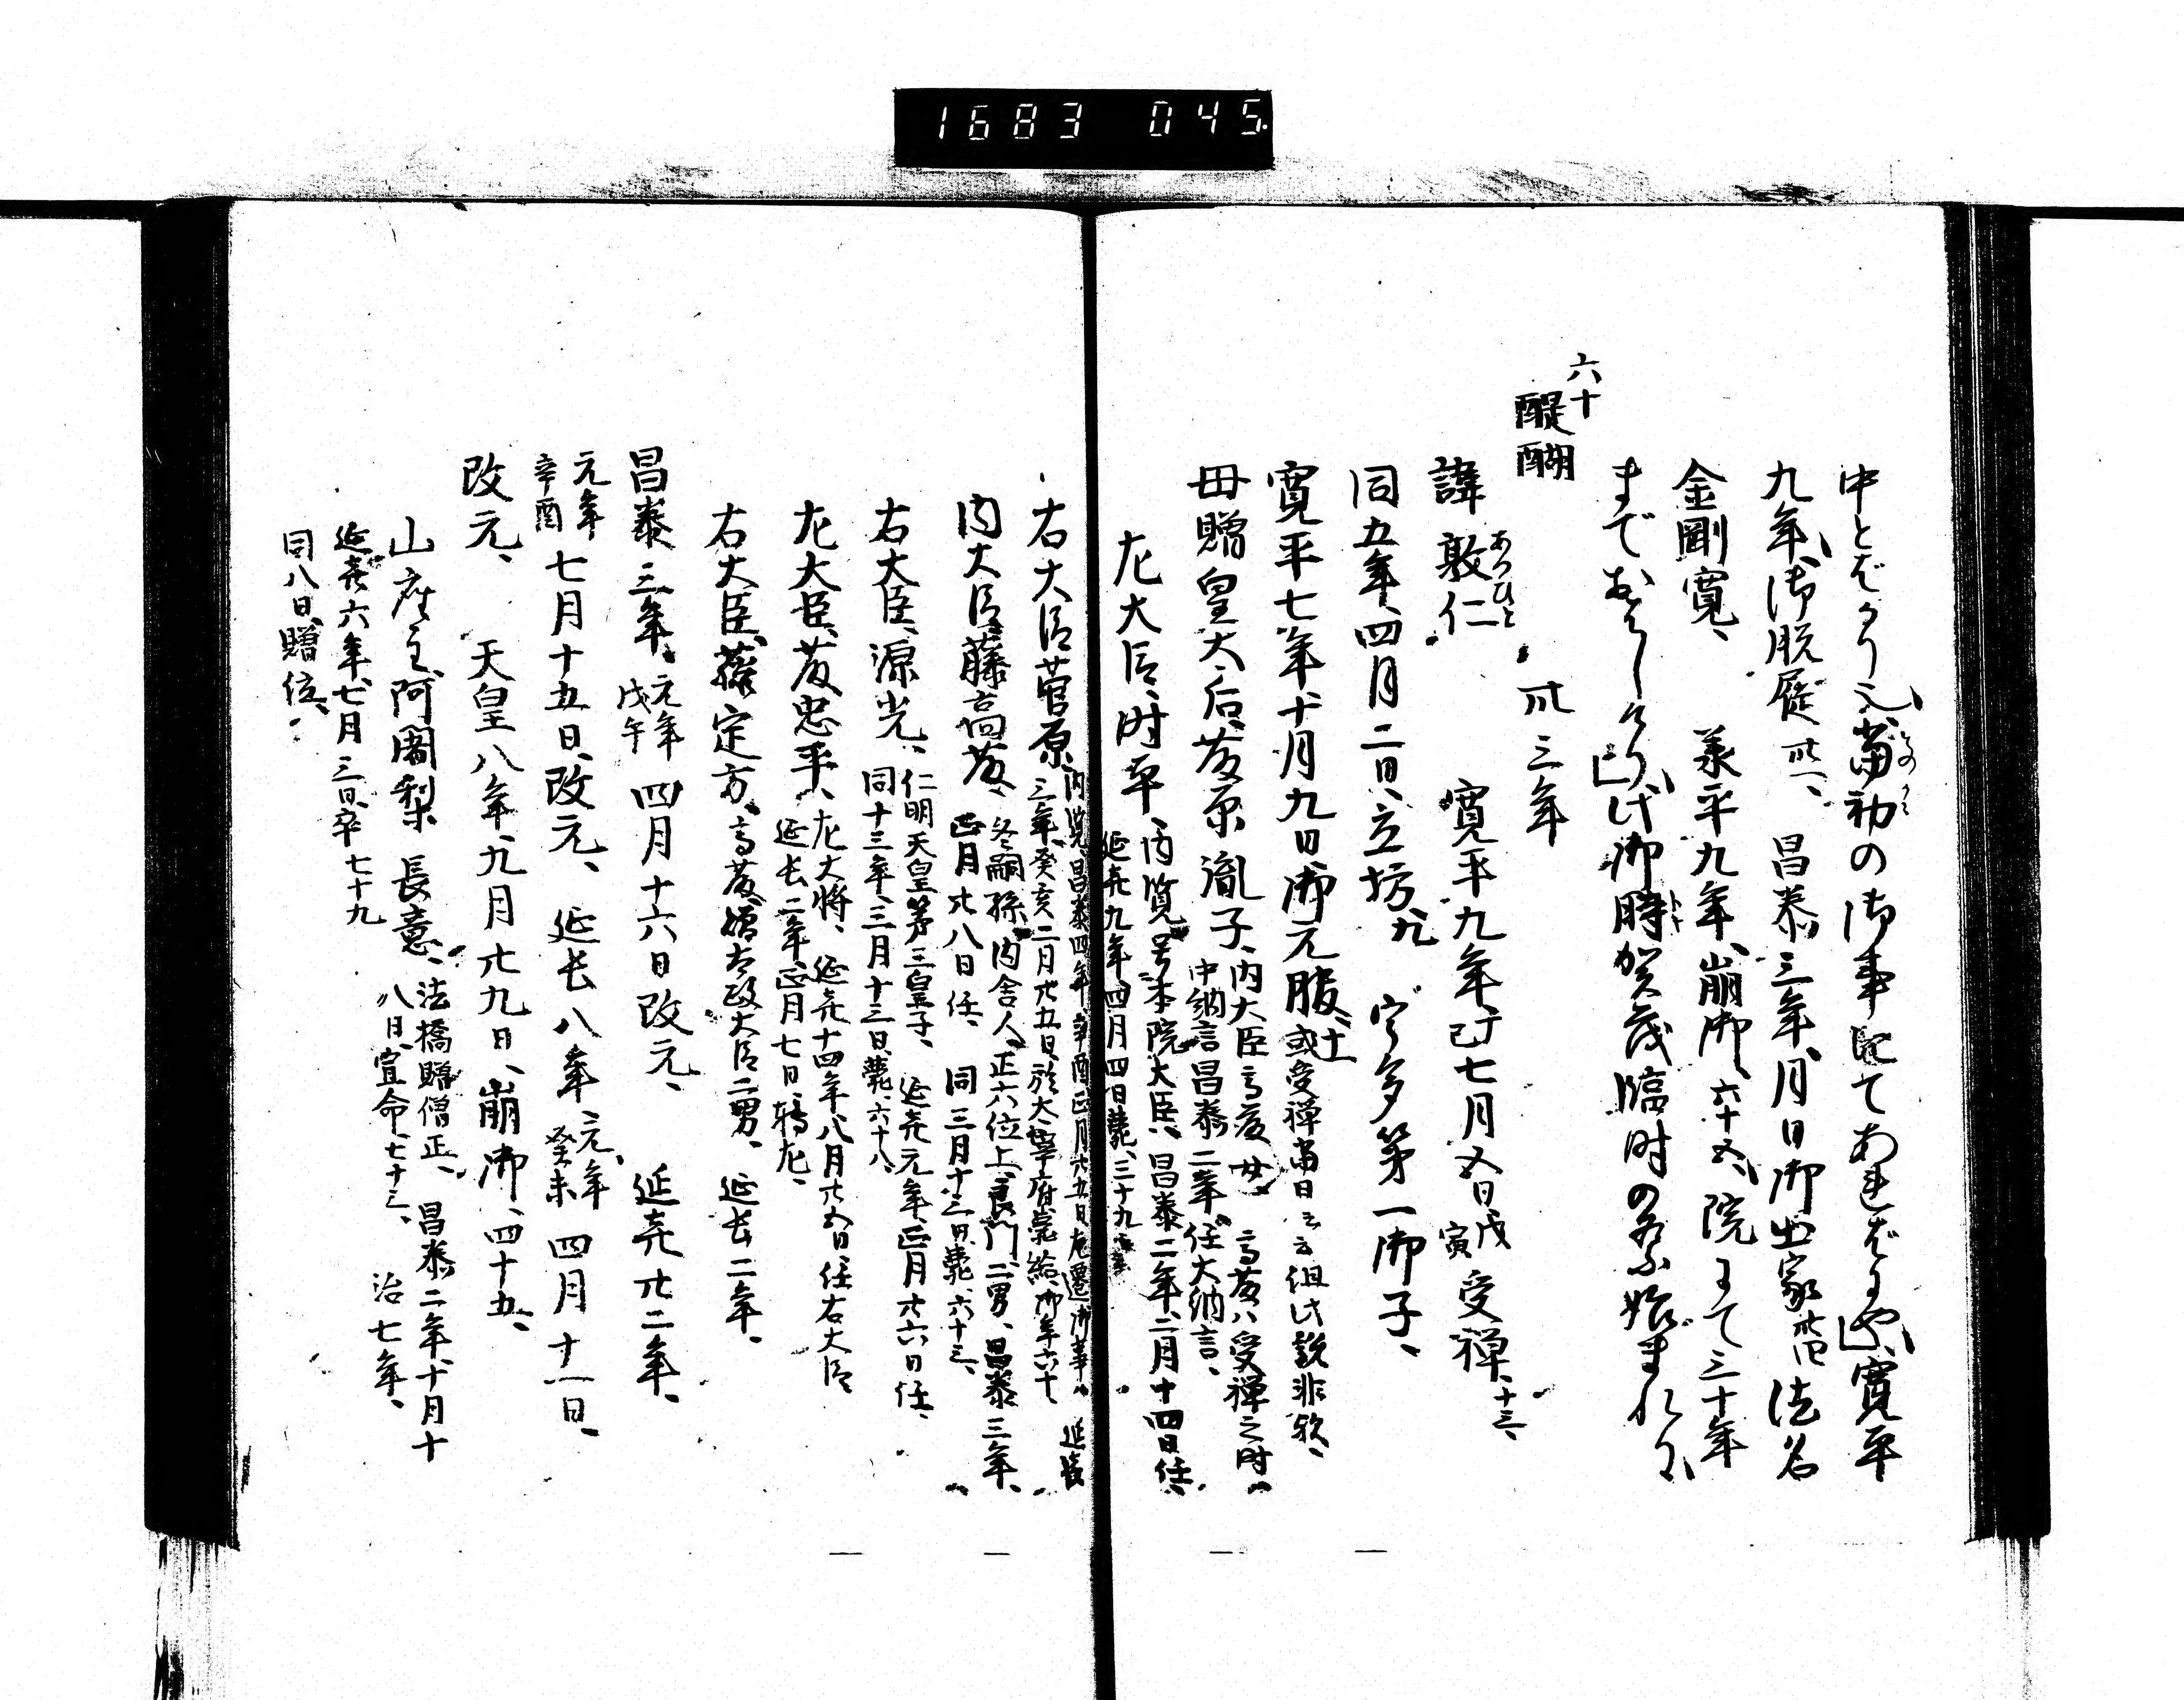 1683 045
中とばかり之当初の御事にてあればにや寛平
九年御脱屣卅一、昌泰三年月日御出家卅四法名
金剛覚、承平九年崩御、六十五、院にて三十年
までおはしけり此御時賀茂臨時の祭始まれり
六十
醍醐 卅三年
諱敦仁 あつひと 寛平九年丁巳七月五日戊寅受禅、十三、
同五年、四月二日、立坊、九 宇多第一御子、
寛平七年十月九日御元服、十一 或受禅当日云云但此説非歟、
母贈皇太后藤原胤子、内大臣高藤女 高藤ハ受禅之時
中納言昌泰二年任大納言、
左大臣時平、内覧号本院大臣、昌泰二年、二月十四日任、
延喜九年四月四日薨、三十九
右大臣菅原、内覧、昌泰四年辛酉正月廿五日左遷御事、延喜
三年癸亥二月廿五日於大宰府薨給、御年六十
内大臣藤高藤、冬嗣孫、内舎人、正六位上良門二男、昌泰三年、
正月廿八日任、同三月十三日薨、六十三、
右大臣、源光、仁明天皇第三皇子、延喜元年、正月廿六日任、
同十三年、三月十三日薨、六十八、
左大臣藤忠平、左大将、延喜十四年八月廿五日任右大臣
延長二年正月七日転左、
右大臣藤定方、高藤贈太政大臣二男、延長二年、
昌泰三年、元年戊午 四月十六日改元、延喜廿二年、
元年辛酉 七月十五日、改元、延長八年 元年癸未 四月十一日、
改元、天皇八年、九月廿九日、崩御、四十五、
山座主阿闍梨長意、法橋贈僧正、昌泰二年、十月十
八日、宣命、七十三、治七年、
延喜六年、七月三日卒七十九
同八日、贈位、